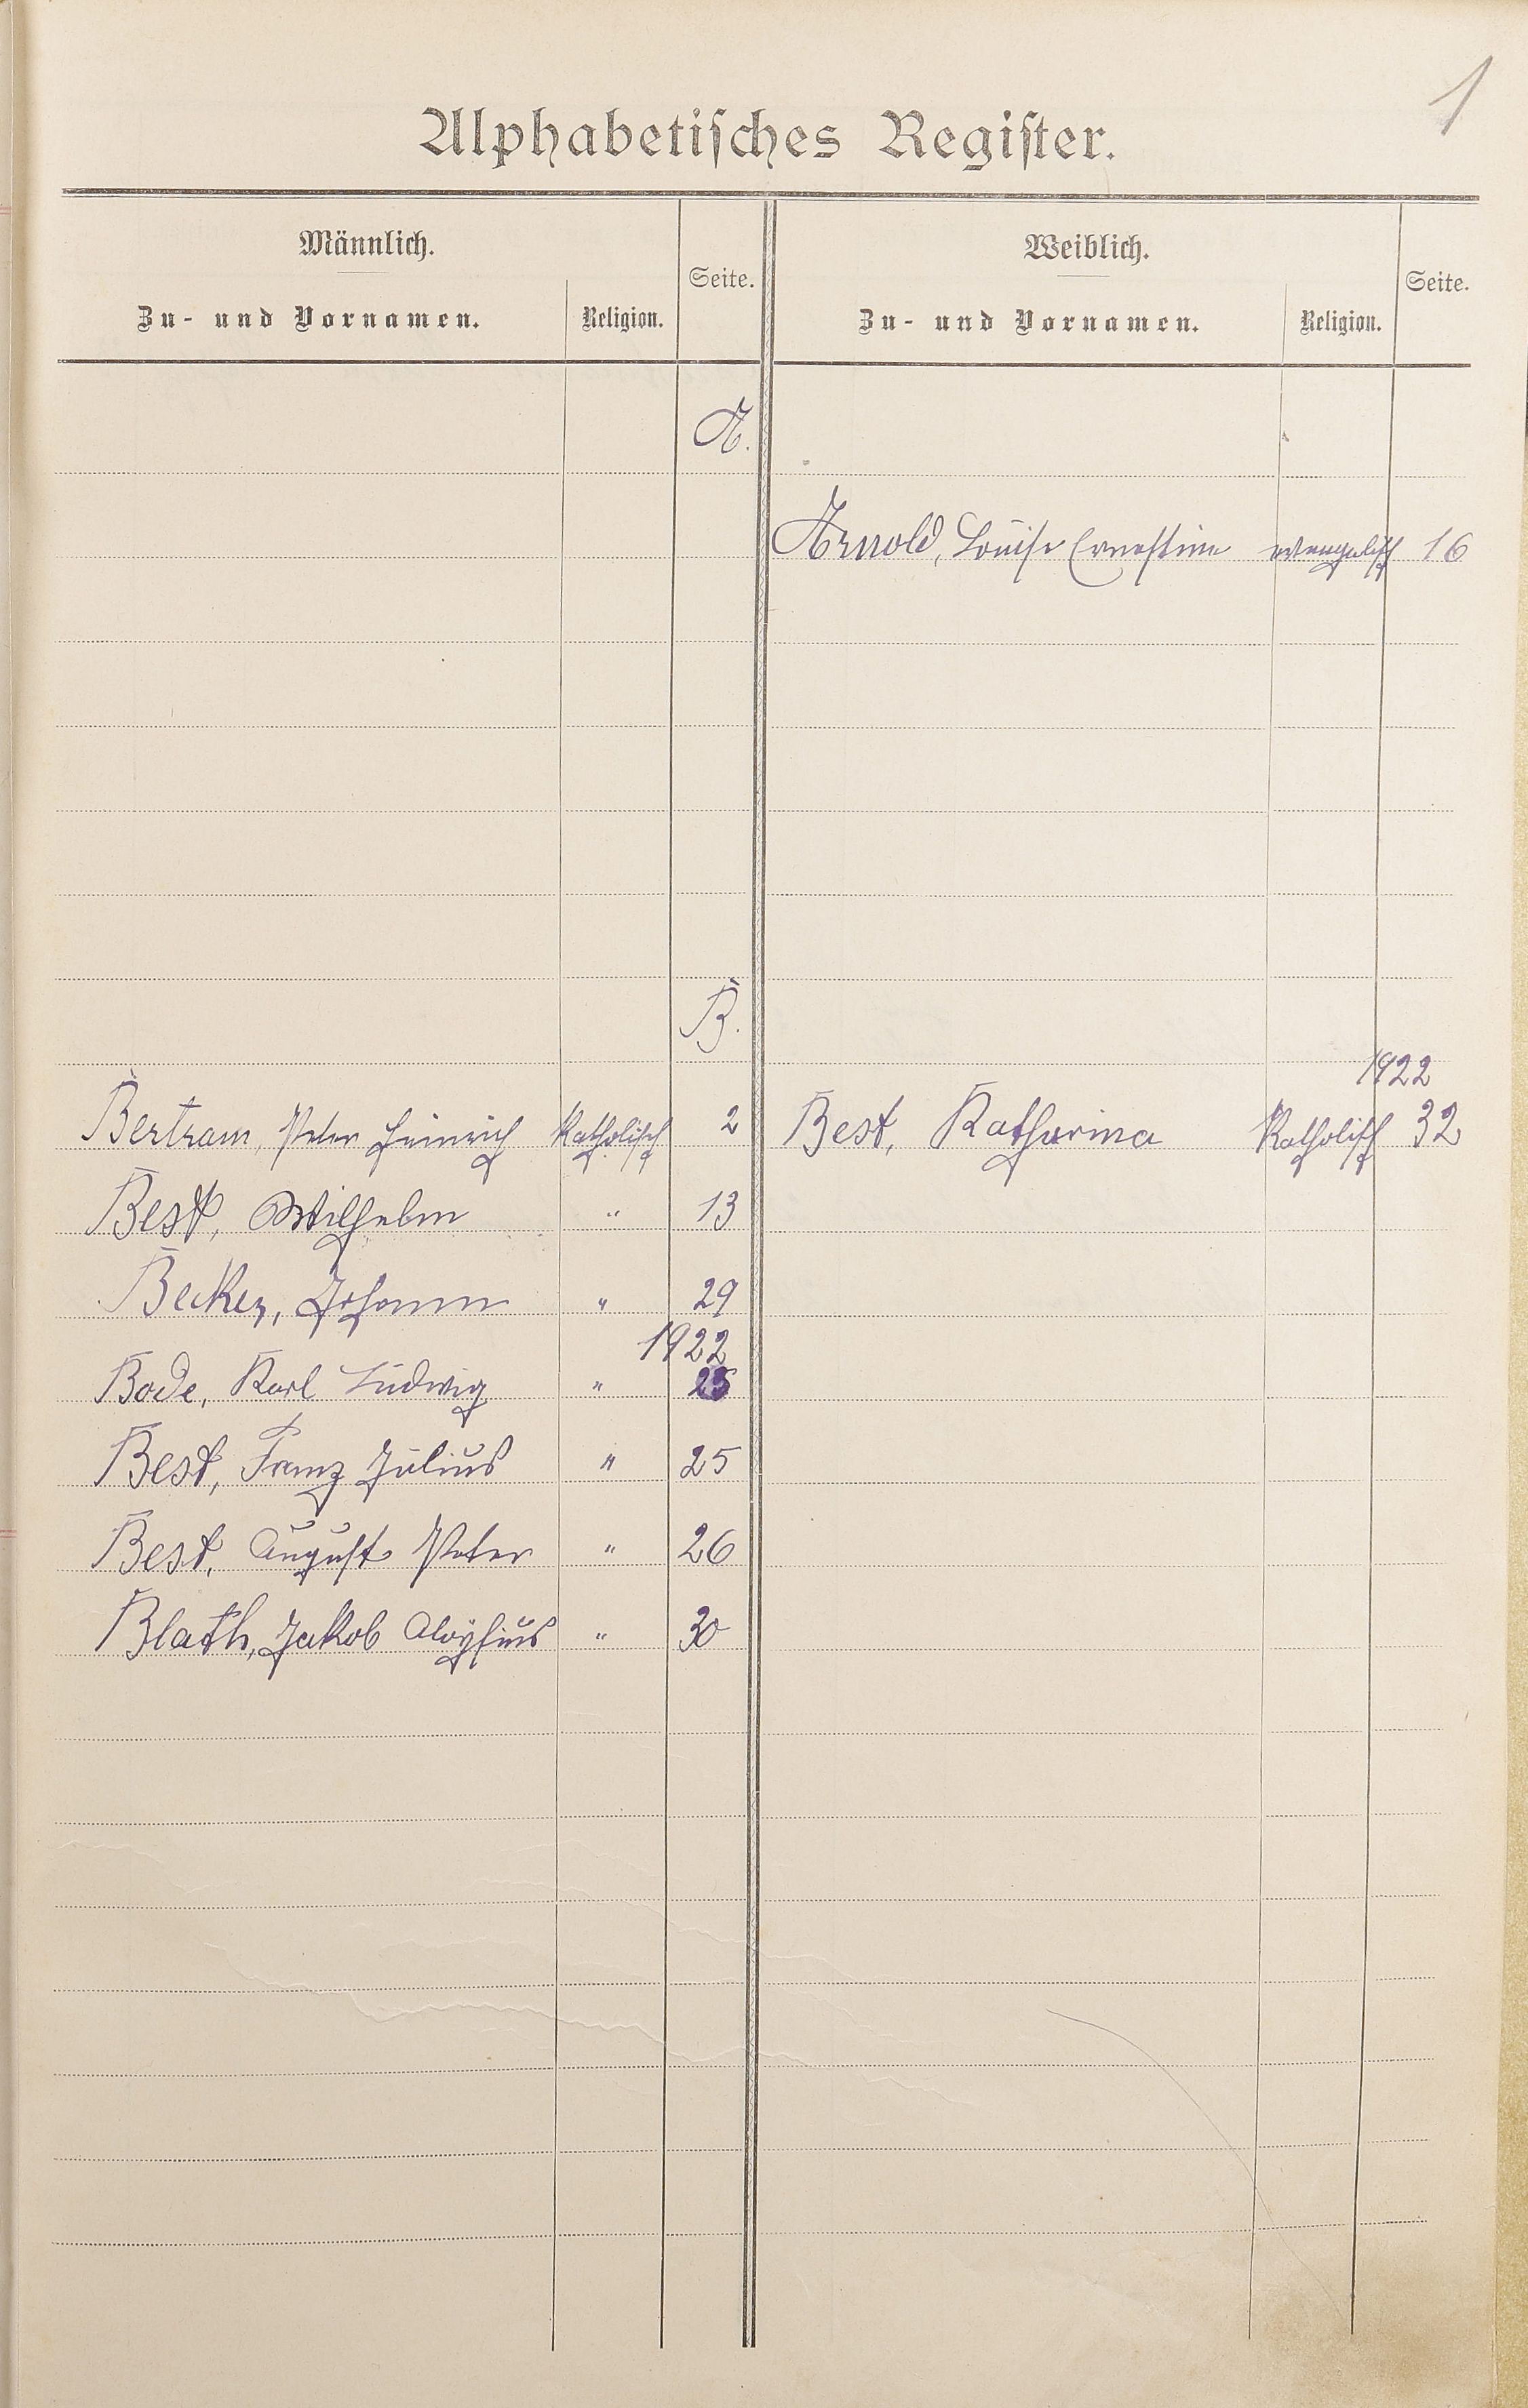 1
Alphabetisches Register.
Männlich. Weiblich.
Seite. Seite.
Zu- und Vornamen. Religion. Zu- und Vornamen. Religion.
A.
Arnold, Louise Ernestine evangelisch 16
B.
1922
Bertram, Peter Heinrich Katholisch 2 Best, Katharina Katholisch 32
Best, Wilhelm " 13
Becker, Johann " 29
1922
Bode, Karl Ludwig "
Best, Franz Julius " 25
Best, August Peter " 26
Blath, Jakob Aloysius " 30